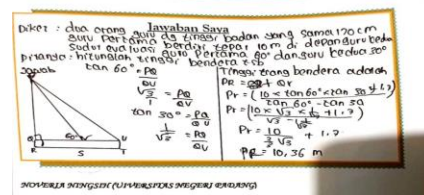 Jawaban Saya
Diket : dua orang guru dg tinggi badan yang sama 170 cm
guru Pertama berdiri tepat 10 m di depan guru kedua
Sudut evaluasi guru Pertama 60° dan guru kedua 30°
Ditanya : hitunglah tinggi bendera tsb
Jawab
tan 60° = PQ
QU
√3 = PQ
1 QV
tan 30° = PQ
QU
1 = PQ
√3 QV
P
Q
60°
U
R
S
T
Tinggi tiang bendera adalah
PR = QR + QV
Pr = (10 × tan 60° × tan 30 + 1,7)
tan 60° - tan 30
Pr = (10 × √3 × 1/√3 + 1,7)
√3 - 1/√3
Pr = 10 + 1,7
2/3 √3
PR = 10,36 m
NOVERIA NINGSIH (UNIVERSITAS NEGERI PADANG)